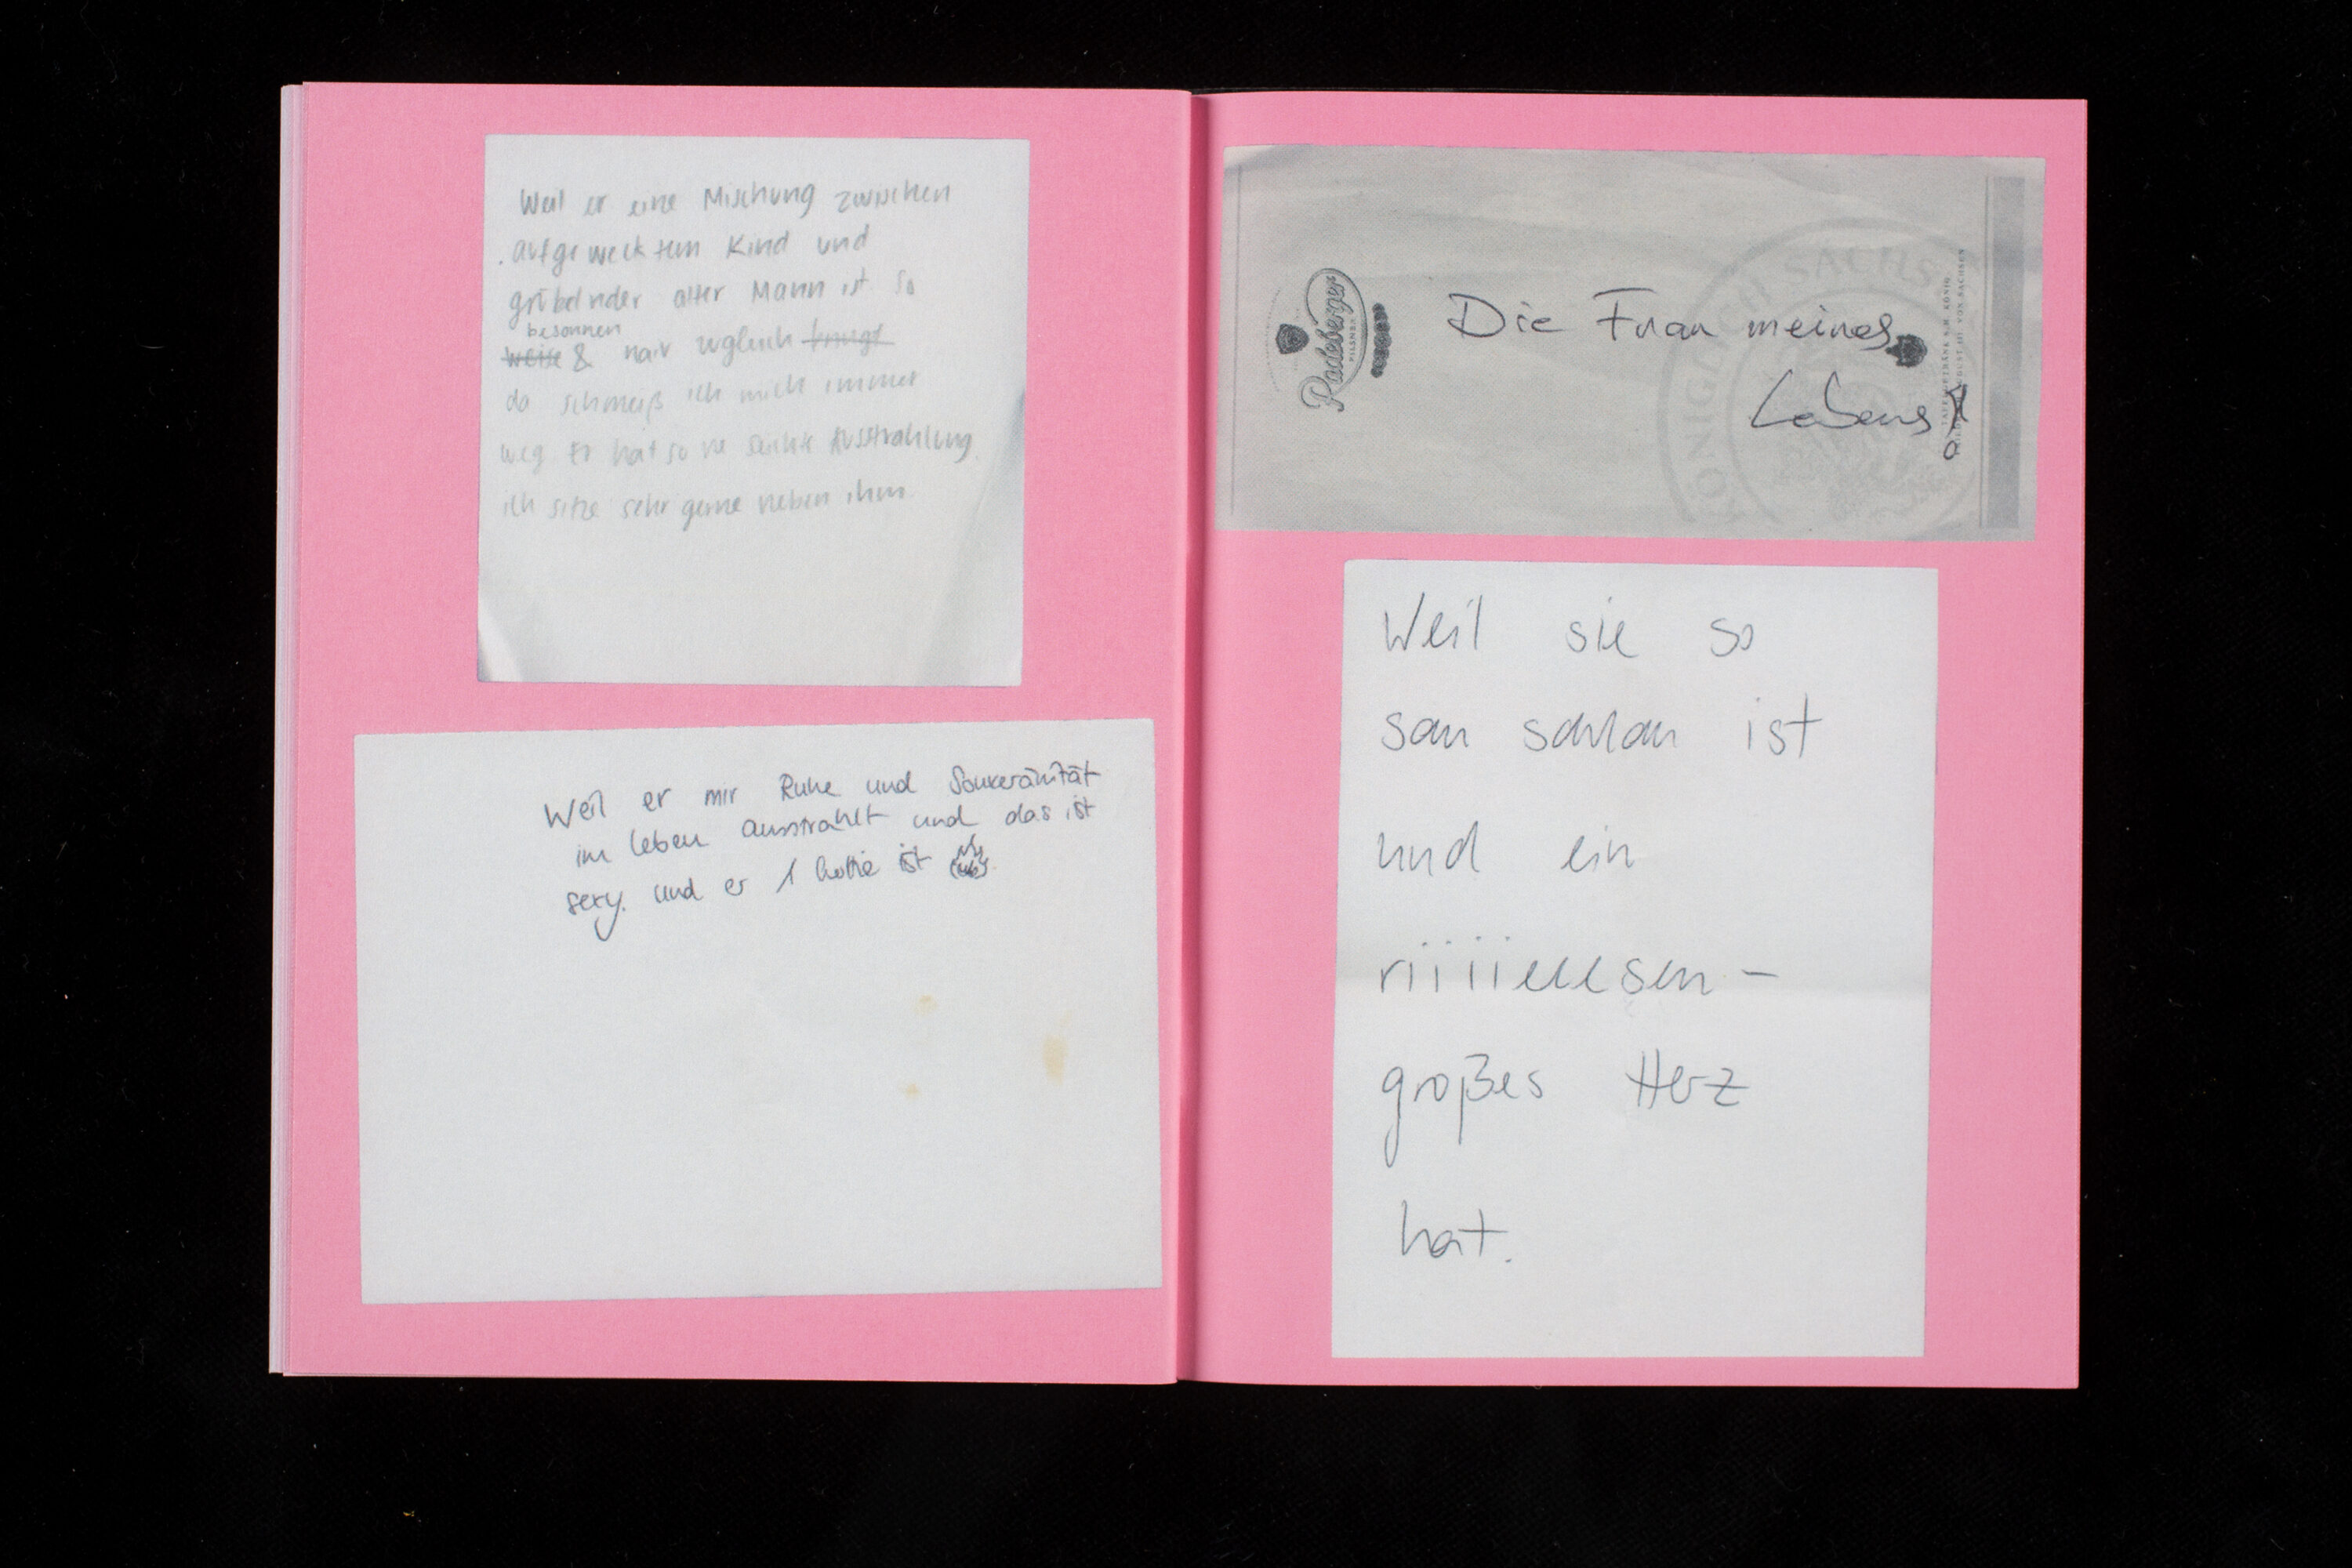 Weil er eine Mischung zwischen
aufgewecktem Kind und
grübelnder alter Mann ist. So
besonnen
weise & naiv zugleich
da schmeiß ich mich immer
weg. Er hat so ne Ausstrahlung.
ich sitze sehr gerne neben ihm.
Weil er mir Ruhe und Souveränität
im leben ausstrahlt und das ist
sexy. und er 1 hottie ist
Radeberger
PILSNER
Die Frau meines
Lebens
KÖNIGLICH SÄCHS
Weil sie so
sau schlau ist
und ein
riiiieeesen-
großes Herz
hat.